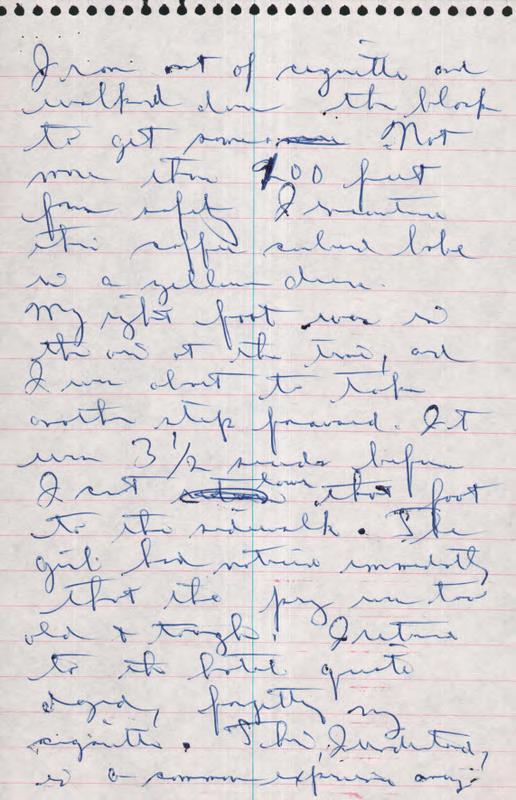 I ran out of cigarettes and
walked down the block
to get some. Not
more than 200 feet
from safety I encounter
this coffee colored babe
in a yellow dress.
My right foot was in
the air at the time, and
I was about to take
another step forward. It
was 3 1/2 seconds before
I could lower that foot
to the sidewalk. The
girl had noticed immediately
that the prey was too
old & tough. I returned
to the hotel quite
dazed, forgetting my
cigarettes. This, I understand,
is a common experience among